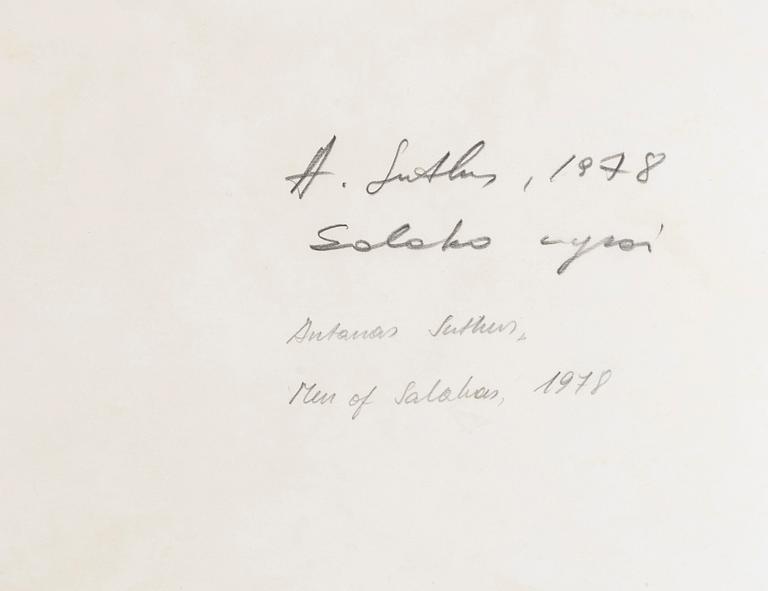 A. Sutkus, 1978
Salako vyrai
Antanas Sutkus,
Men of Salakas, 1978